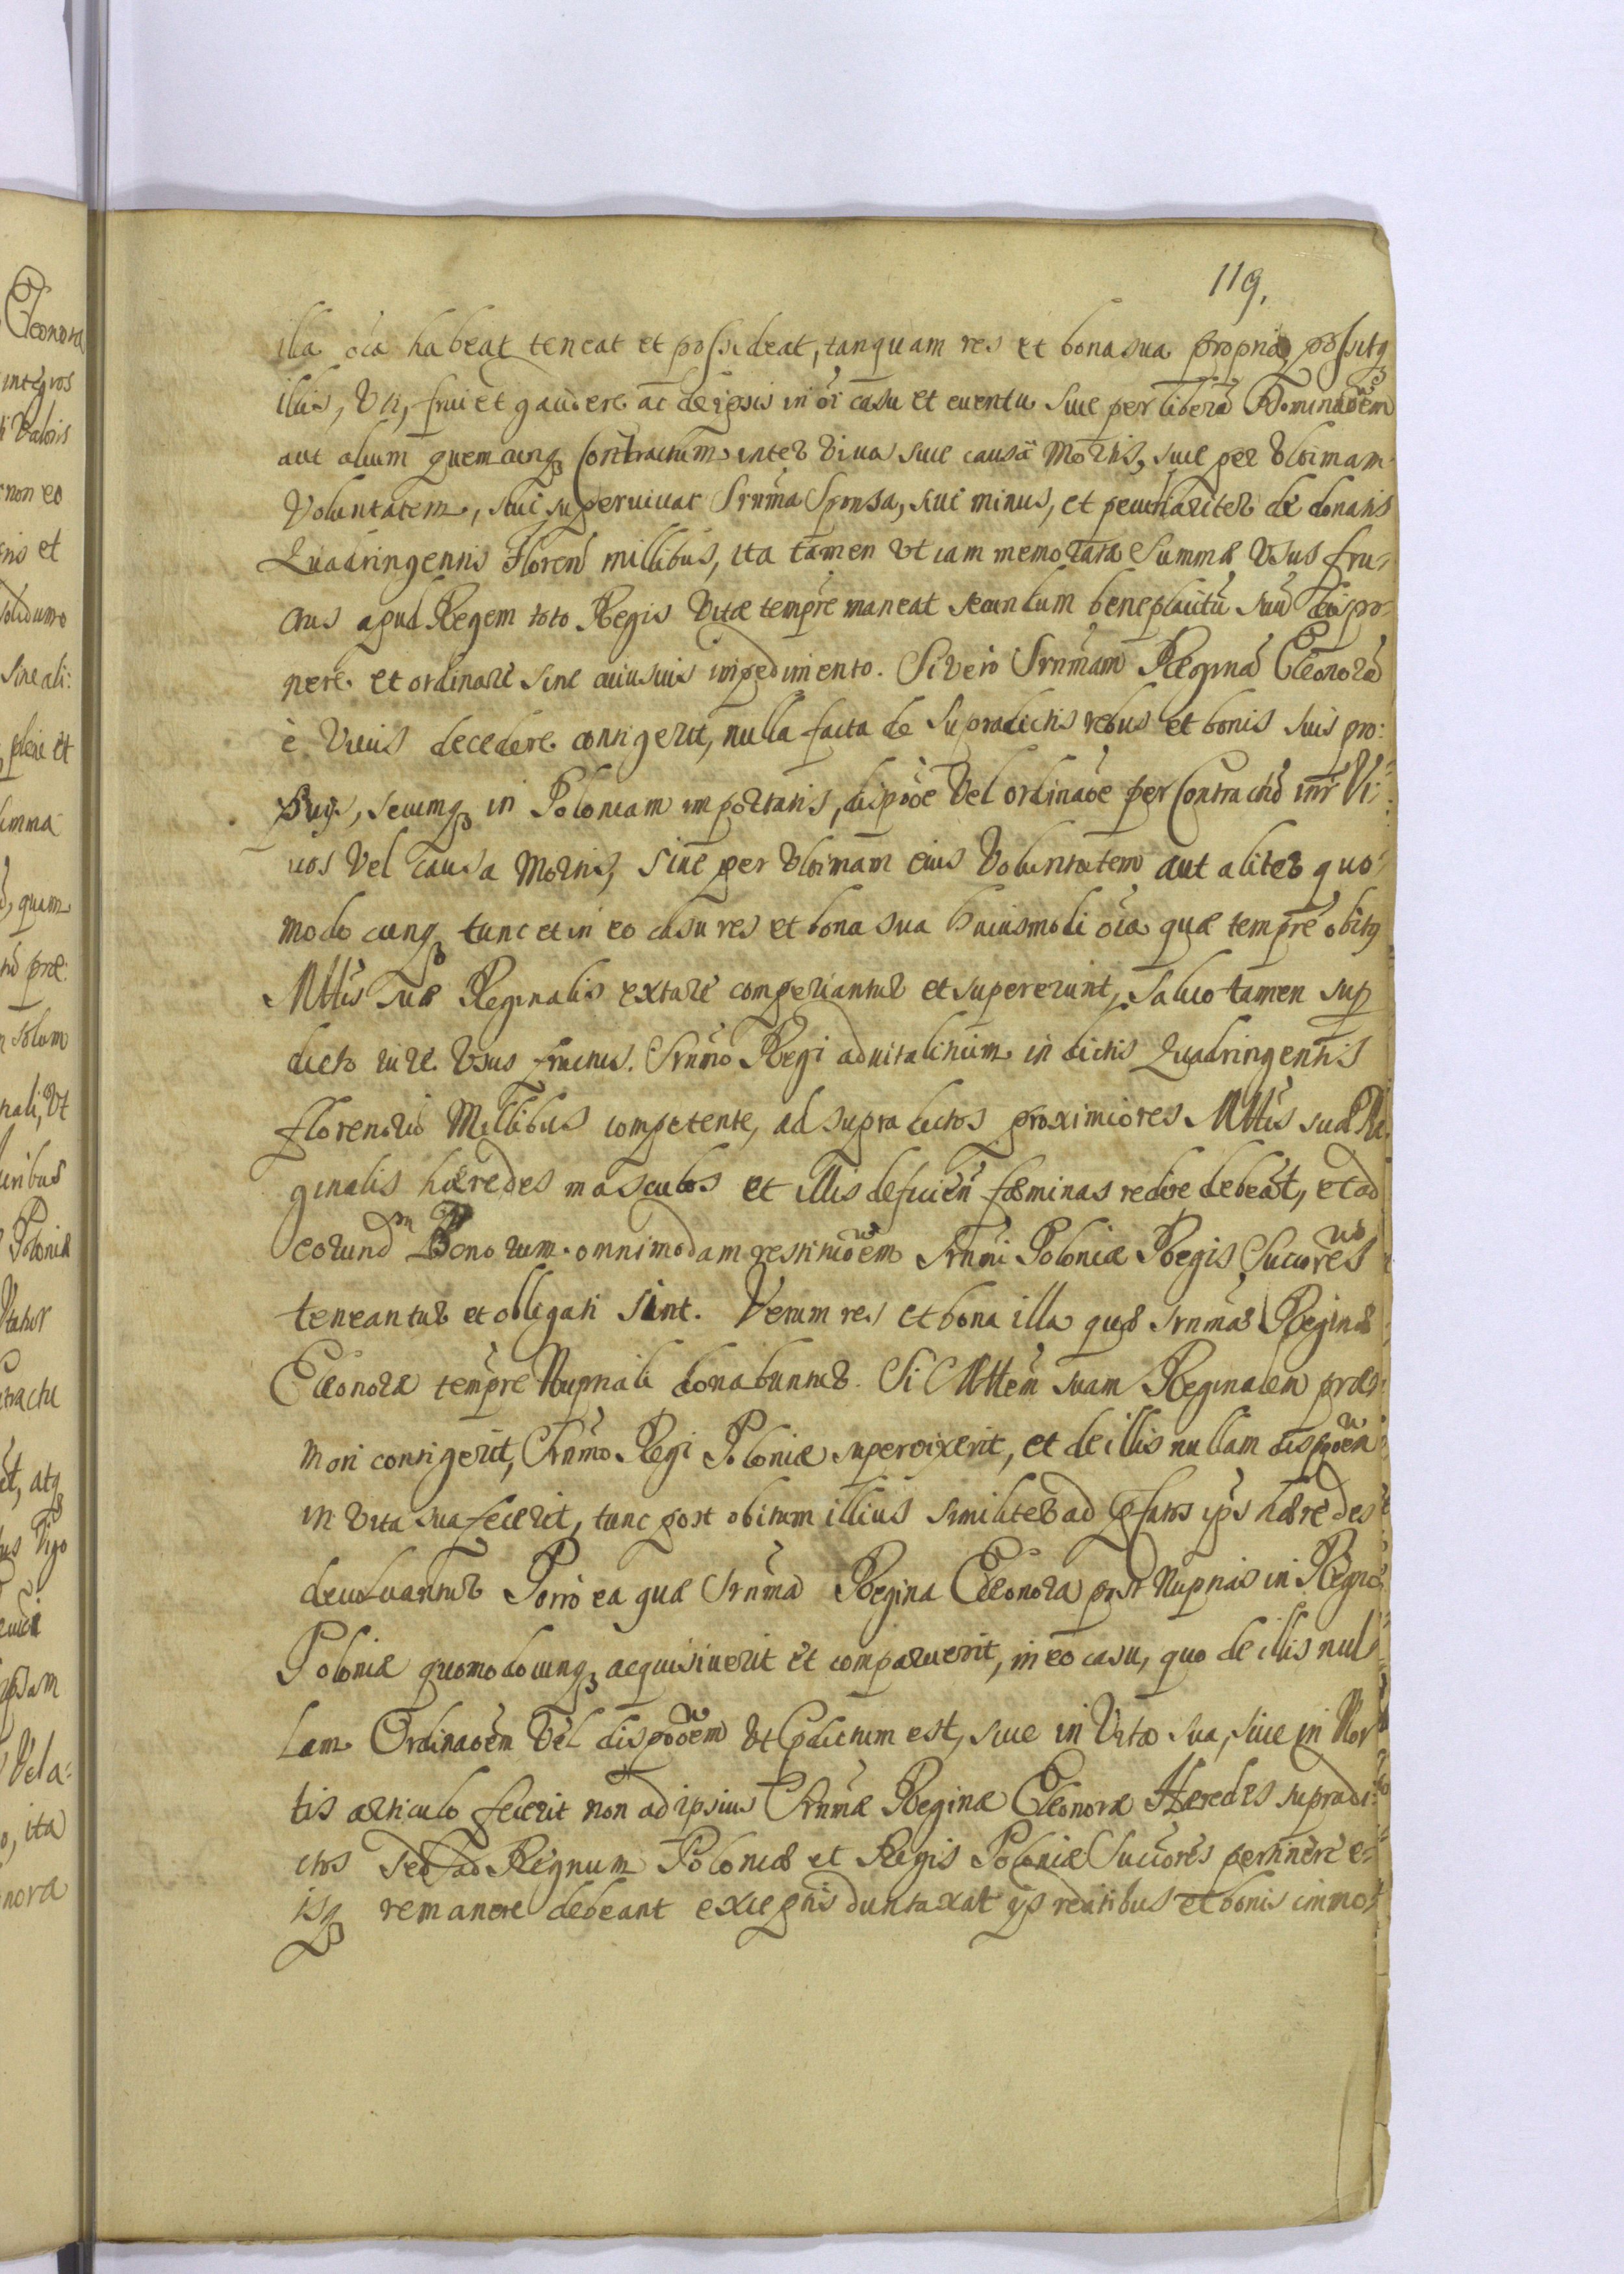 119.
illa oĩa habeat teneat et possideat, tanquam res et bona sua propria, possitq3
illis, Uti, frui et gaudere ac de ipsis in oĩ casu et euentu siue per liberã Dominaoẽm
aut alium quemcunq3 Contractum inter viua siue causâ Mortis, siue per Ultimam
Voluntatem, siui superuiuat Srñma Sponsa, siui minus, et peculiariter de donatis
Quadringentis Floreñ millibus, ita tamen Ut iam memorata Summæ Usus fru-
ctus apud Regem toto Regis Vitæ tempre maneat secundum beneplacitũ suũ dispo-
nere et ordinare sine cuiusuis impedimento. Si vero Srñmam Reginã Eleonorã
è Viuis decedere contigerit, nulla facta de supradictis rebus et bonis suis pro:
prijs, secumq3 in Poloniam importatis, dispõoe Vel ordinaõe per Contractũ intr Vi:
uos Vel causa Mortis, siue per Ultimam eius Voluntatem aut aliter quo:
modo cunq3 tunc et in eo casu res et bona sua huiusmodi oĩa quæ tempre obitq
Mttis suæ Reginalis extare comperiantur et supererunt, saluo tamen sup
dicto iure Usus fructus. Srñmo Regi aduitalitium in dictis Quadringentis
florenorũ Millibus competente, ad supra dictos proximiores Mttis suæ Re
ginalis hæredes masculos et illis deficien fæminas redire debeãt, et ad
eorundm Bonorum omnimodam restituõem Srñmi Poloniæ Regis Succores
teneantur et obligati sint. Verum res et bona illa quæ Srñmæ Reginæ
Eleonoræ tempre Nuptiali donabuntur. Si Mttem suam Reginalem præ:
mori contigerit, Srñmo Regi Poloniæ superuixerit, et de illis nullam dispõem
in Vita sua fecerit, tunc post obitum illius similiter ad pfatos ips hæredes
deuoluantur Porro ea quæ Srñma Regina Eleonora post Nuptias in Regno
Poloniæ quomodocunq3 acquisiuerit et comparuerit, in eo casu, quo de illis nul
lam Ordinaõem Vel dispõoem Ut pdictum est, siue in Vita sua, siue in Mor
tis articulo fecerit non ad ipsius Srñmæ Reginæ Eleonoræ Hæredes supradi:
ctos sed ad Regnum Poloniæ et Regis Poloniæ Succores pertinere e-
isq3 remanere debeant exceptis duntaxat ijs reditibus et bonis immo: